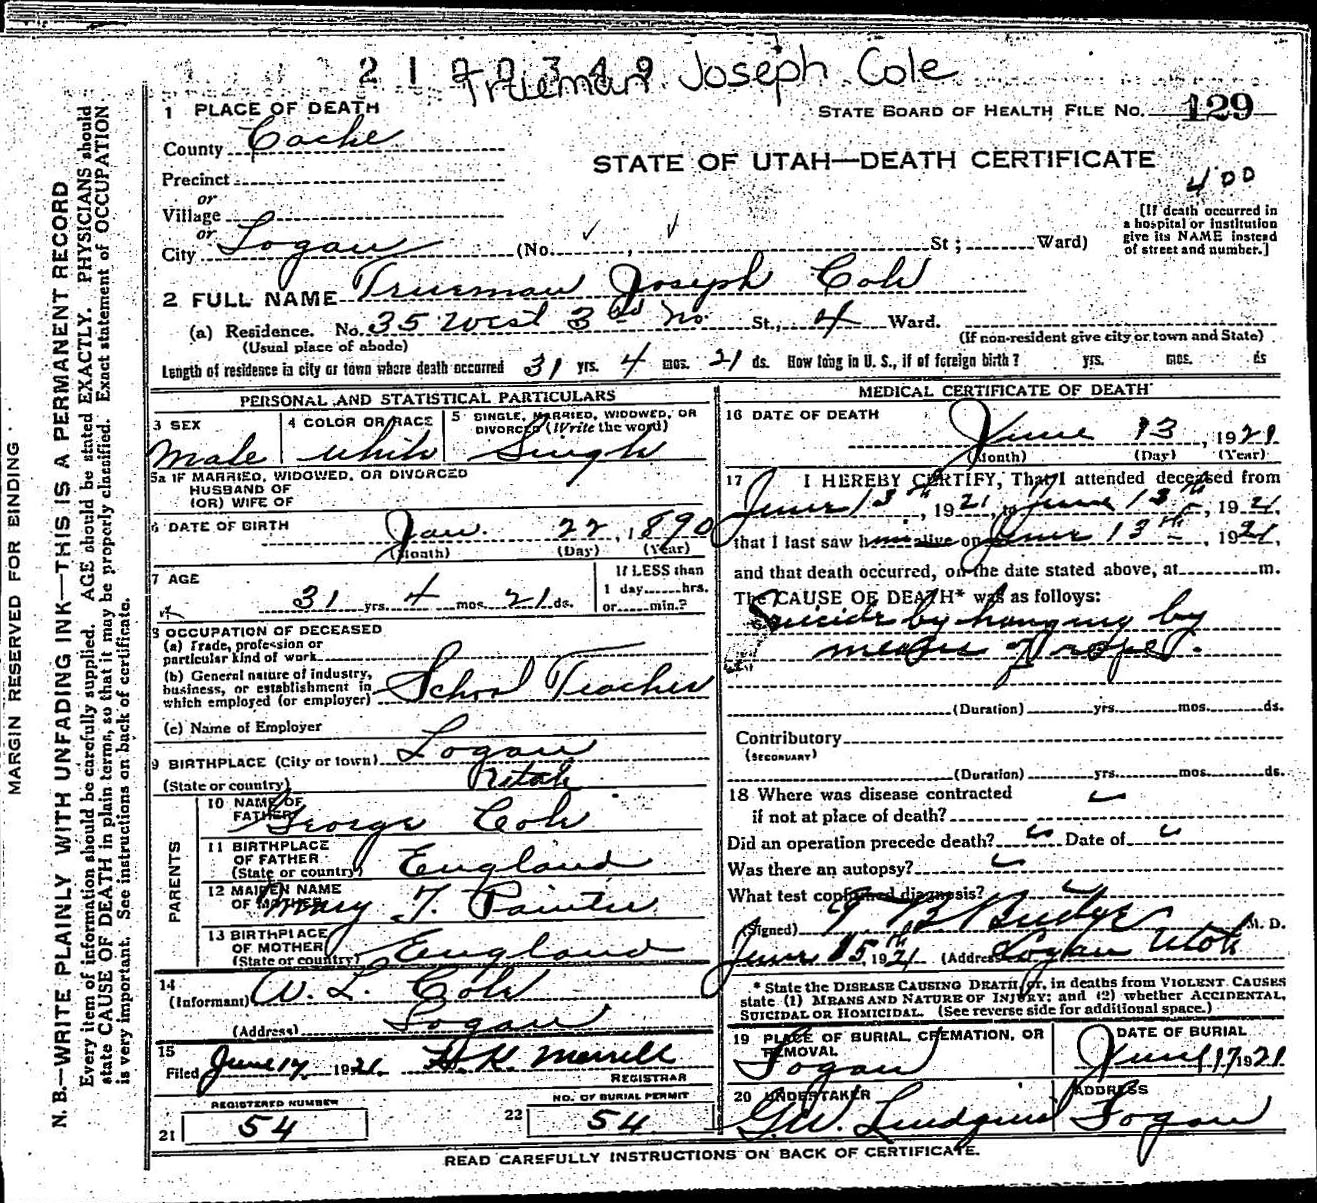 2100349
Trueman Joseph Cole
1 PLACE OF DEATH
STATE BOARD OF HEALTH FILE NO. 129
County Cache
STATE OF UTAH—DEATH CERTIFICATE
Precinct
400
or
Village
or
City Logan (No. St; Ward)
[If death occurred in
a hospital or institution
give its NAME instead
of street and number.]
2 FULL NAME Trueman Joseph Cole
(a) Residence. No. 35 West 3rd No St., 4 Ward.
(Usual place of abode) (If non-resident give city or town and State)
Length of residence in city or town where death occurred 31 yrs. 4 mos. 21 ds. How long in U. S., if of foreign birth? yrs. mos. ds
PERSONAL AND STATISTICAL PARTICULARS
3 SEX
Male
4 COLOR OR RACE
White
5 SINGLE, MARRIED, WIDOWED, OR
DIVORCED (Write the word)
Single
5a IF MARRIED, WIDOWED, OR DIVORCED
HUSBAND OF
(OR) WIFE OF
6 DATE OF BIRTH Jan. 22, 1890
(Month) (Day) (Year)
7 AGE
31 yrs. 4 mos. 21 ds.
If LESS than
1 day hrs.
or min.?
8 OCCUPATION OF DECEASED
(a) Trade, profession or
particular kind of work
(b) General nature of industry,
business, or establishment in
which employed (or employer) School Teacher
(c) Name of Employer
9 BIRTHPLACE (City or town) Logan
(State or country) Utah
PARENTS
10 NAME OF
FATHER George Cole
11 BIRTHPLACE
OF FATHER
(State or country) England
12 MAIDEN NAME
OF MOTHER Mary T. Painter
13 BIRTHPLACE
OF MOTHER
(State or country) England
14
(Informant) W. L. Cole
(Address) Logan
15
Filed June 17 1921. H. K. Merrill
REGISTRAR
REGISTERED NUMBER
21 54
NO. OF BURIAL PERMIT
22 54
MEDICAL CERTIFICATE OF DEATH
16 DATE OF DEATH
June 13, 1921
(Month) (Day) (Year)
17 I HEREBY CERTIFY, That I attended deceased from
June 13th, 1921, to June 13th, 1921,
that I last saw him alive on June 13th, 1921,
and that death occurred, on the date stated above, at m.
The CAUSE OF DEATH* was as follows:
Suicide by hanging by
means of rope.
(Duration) yrs. mos. ds.
Contributory
(SECONDARY)
(Duration) yrs. mos. ds.
18 Where was disease contracted
if not at place of death?
Did an operation precede death? Date of
Was there an autopsy?
What test confirmed diagnosis?
(Signed) Budge M. D.
June 15th, 1921 (Address) Logan Utah
* State the DISEASE CAUSING DEATH, or, in deaths from VIOLENT CAUSES
state (1) MEANS AND NATURE OF INJURY; and (2) whether ACCIDENTAL,
SUICIDAL OR HOMICIDAL. (See reverse side for additional space.)
19 PLACE OF BURIAL, CREMATION, OR
REMOVAL
Logan
DATE OF BURIAL
June 17 1921
20 UNDERTAKER
G. W. Lindquist
ADDRESS
Logan
READ CAREFULLY INSTRUCTIONS ON BACK OF CERTIFICATE.
MARGIN RESERVED FOR BINDING
N. B.—WRITE PLAINLY WITH UNFADING INK—THIS IS A PERMANENT RECORD
Every item of information should be carefully supplied. AGE should be stated EXACTLY. PHYSICIANS should
state CAUSE OF DEATH in plain terms, so that it may be properly classified. Exact statement of OCCUPATION
is very important. See instructions on back of certificate.